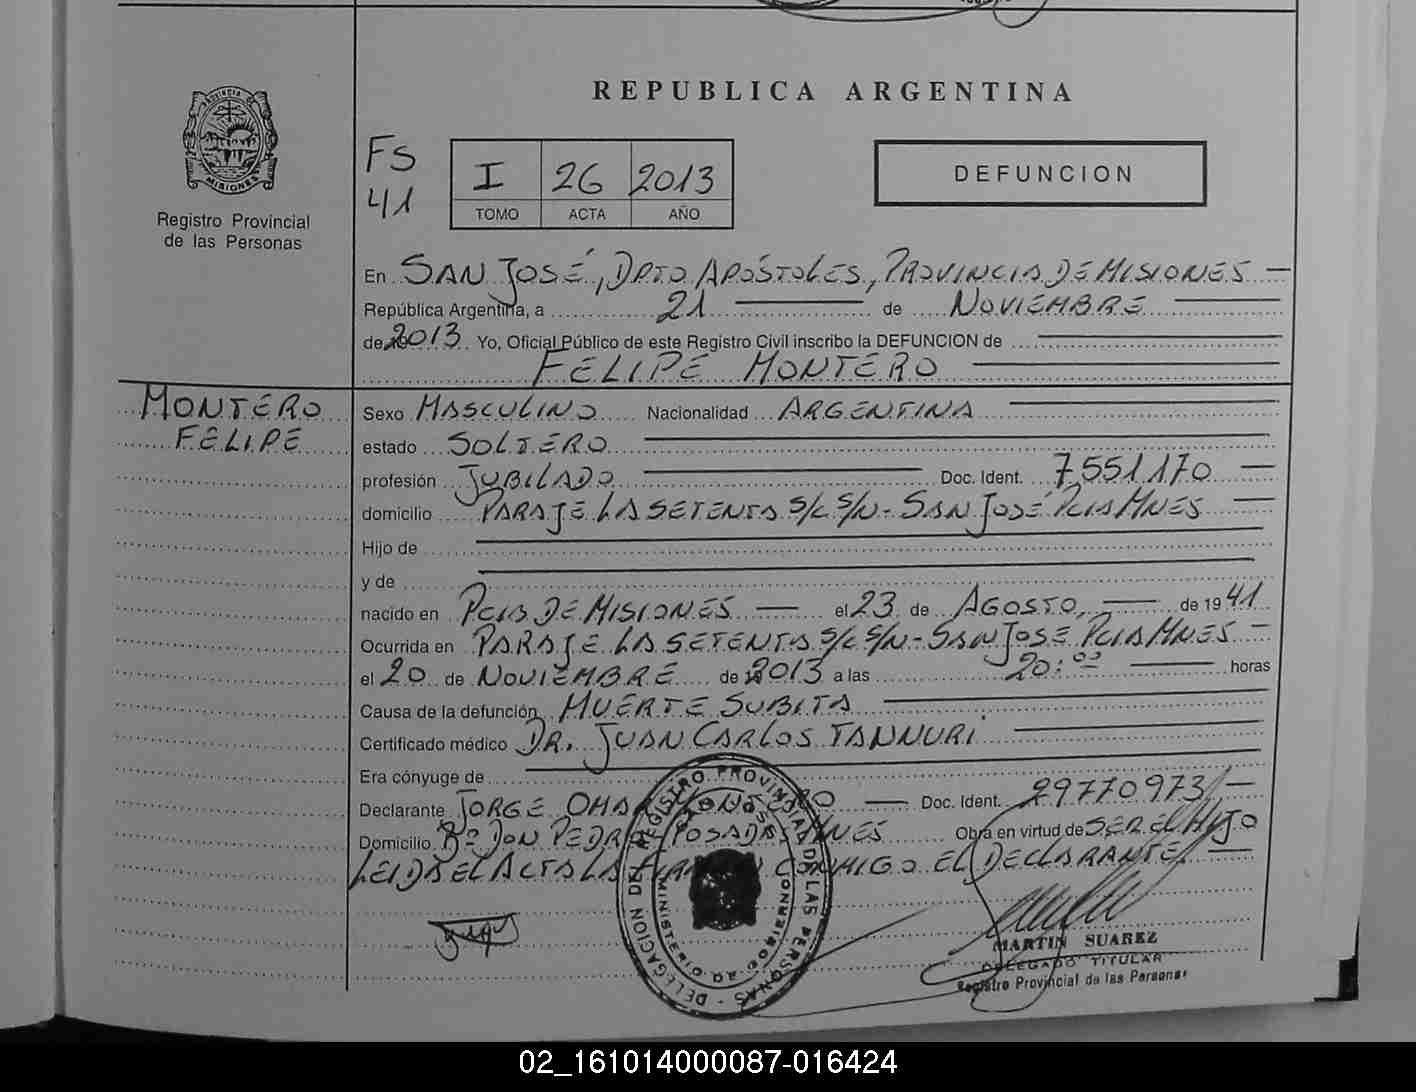 REPUBLICA ARGENTINA
PROVINCIA DE
MISIONES
Registro Provincial
de las Personas
FS
41
I 26 2013
TOMO ACTA AÑO
DEFUNCION
En SAN JOSÉ, DPTO APÓSTOLES, PROVINCIA DE MISIONES
República Argentina, a 21 de NOVIEMBRE
de 2013 Yo, Oficial Público de este Registro Civil inscribo la DEFUNCION de
FELIPE MONTERO
MONTERO
FELIPE
Sexo MASCULINO Nacionalidad ARGENTINA
estado SOLTERO
profesión JUBILADO Doc. Ident. 7.551.170
domicilio PARAJE LA SETENTA S/C S/N - SAN JOSÉ PCIA MNES
Hijo de
y de
nacido en PCIA DE MISIONES el 23 de AGOSTO de 1941
Ocurrida en PARAJE LA SETENTA S/C S/N - SAN JOSÉ PCIA MNES
el 20 de NOVIEMBRE de 2013 a las 20:00 horas
Causa de la defunción MUERTE SUBITA
Certificado médico DR. JUAN CARLOS TANNURI
Era cónyuge de
Declarante JORGE OMAR Doc. Ident. 29770973
Domicilio Bº DON PEDRO POSADAS MNES Obra en virtud de SER EL HIJO
LEIDA EL ACTA LA FIRMA CONMIGO EL DECLARANTE
DELEGACION DEL REGISTRO PROVINCIAL DE LAS PERSONAS
MINISTERIO DE GOBIERNO
MARTIN SUAREZ
DELEGADO TITULAR
Registro Provincial de las Personas
02_161014000087-016424